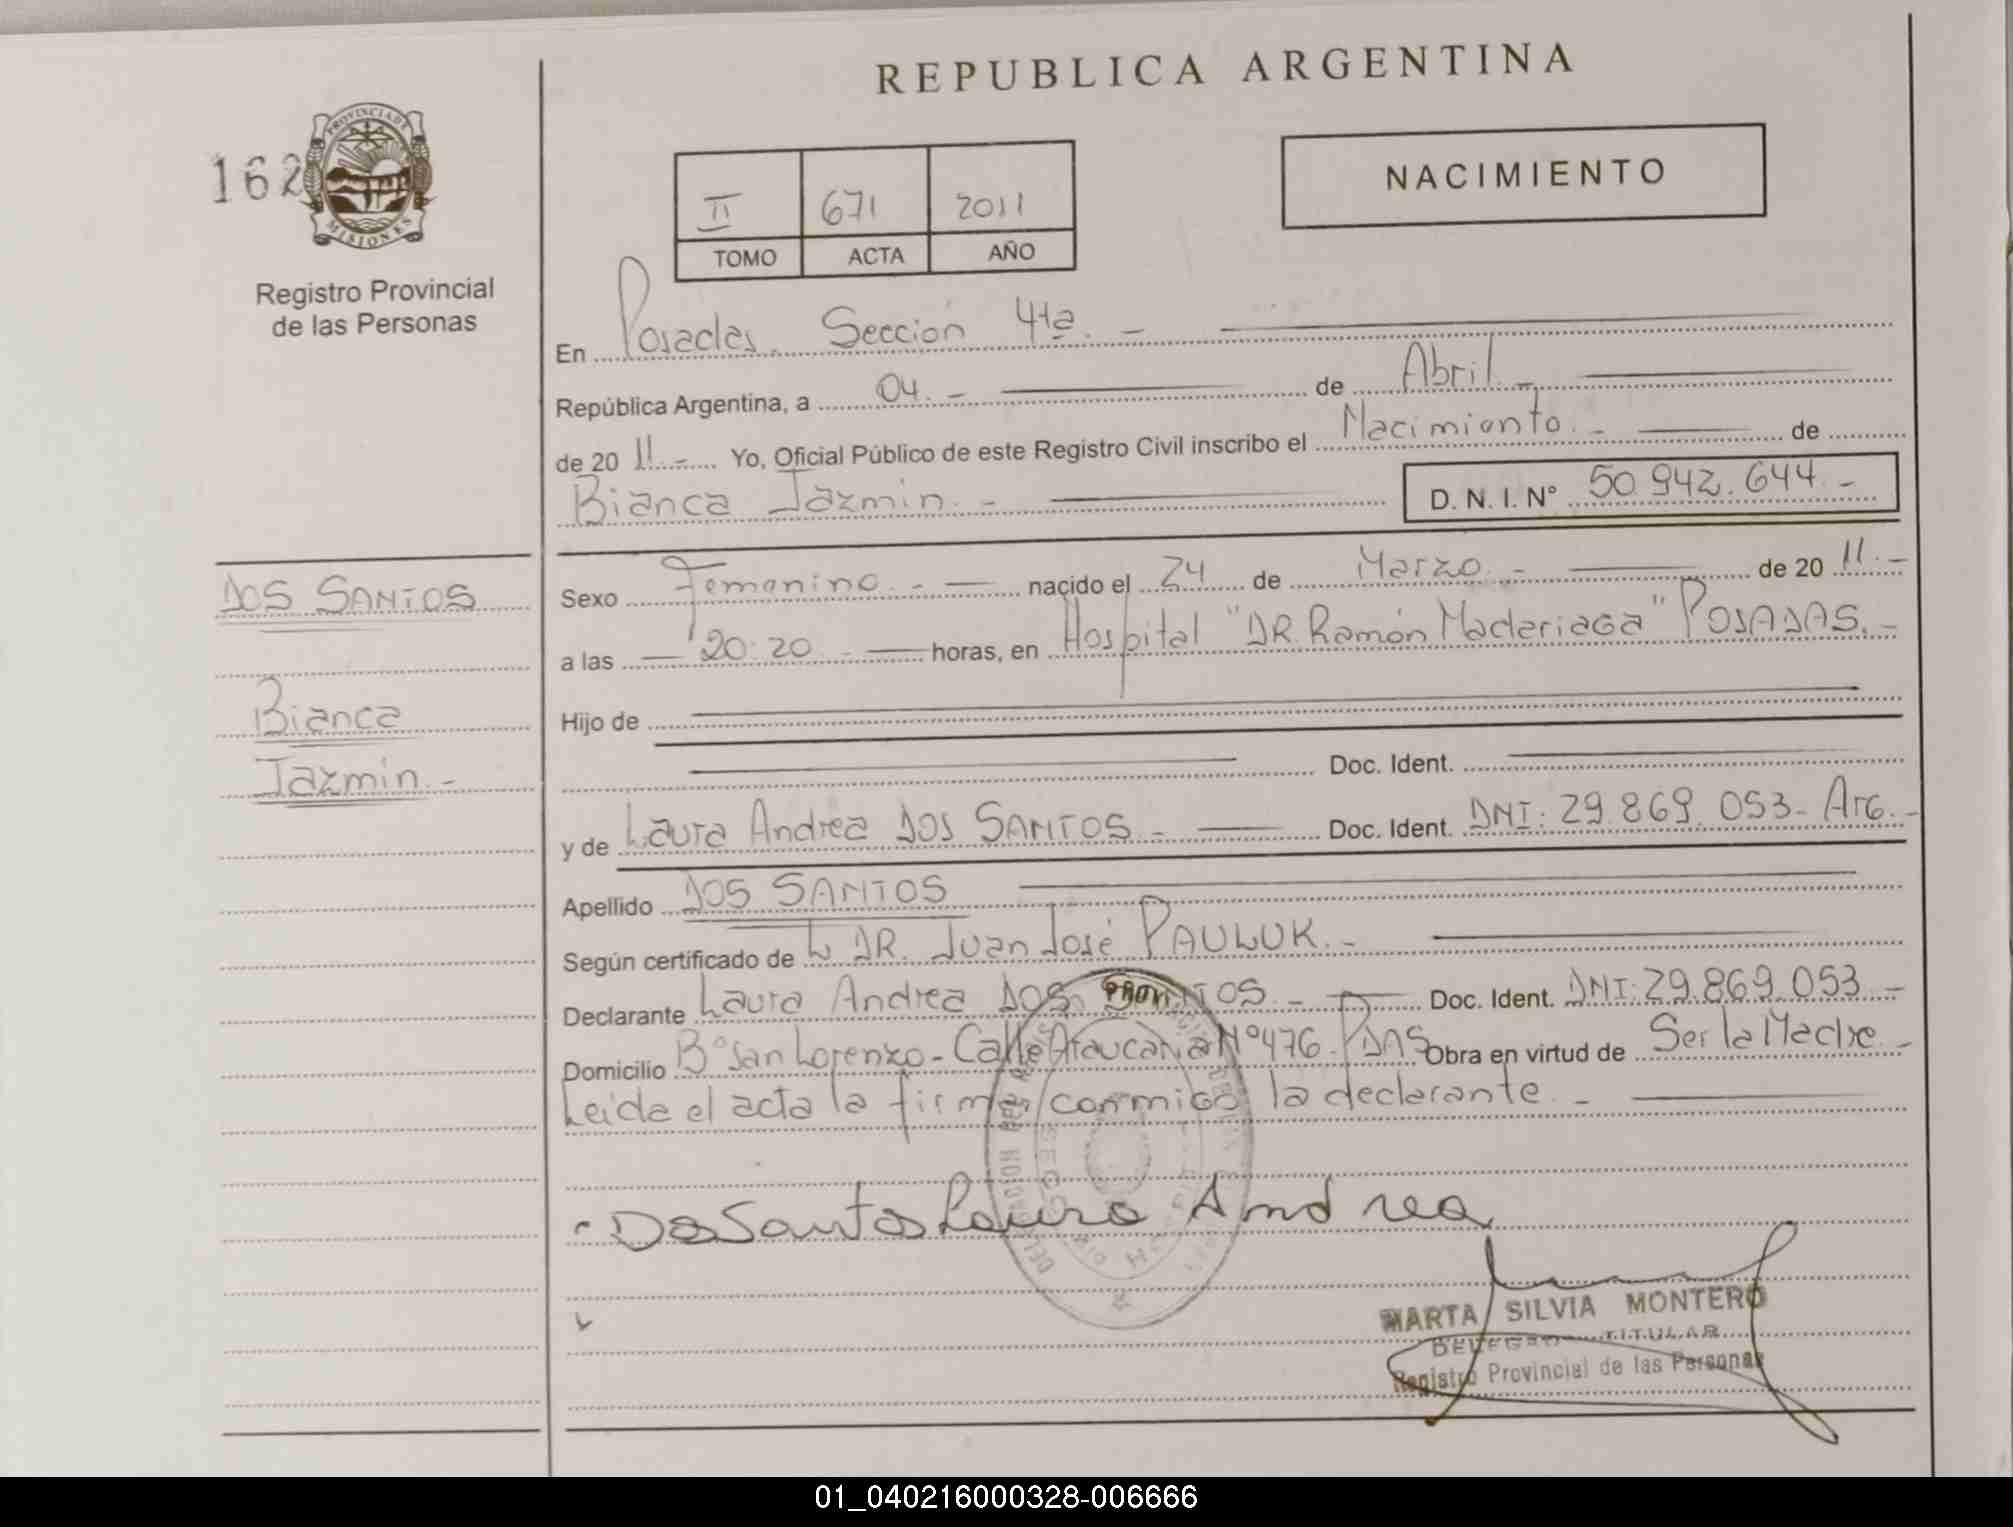 REPUBLICA ARGENTINA
162
PROVINCIA DE
MISIONES
Registro Provincial
de las Personas
II 671 2011
TOMO ACTA AÑO
NACIMIENTO
En Posadas. Sección 4ta. -
República Argentina, a 04. - de Abril. -
de 20 11. - Yo, Oficial Público de este Registro Civil inscribo el Nacimiento. - de
Bianca Jazmin. - D. N. I. Nº 50.942.644. -
DOS SANTOS
Bianca
Jazmin. -
Sexo Femenino. - nacido el 24 de Marzo. - de 20 11. -
a las 20:20 - horas, en Hospital "DR. Ramón Madariaga" POSADAS. -
Hijo de
Doc. Ident.
y de Laura Andrea DOS SANTOS. - Doc. Ident. DNI: 29.869.053 - Arg. -
Apellido DOS SANTOS
Según certificado de DR. Juan José PAULUK. -
Declarante Laura Andrea DOS SANTOS. - Doc. Ident. DNI: 29.869.053 -
Domicilio Bº San Lorenzo - Calle Araucaria Nº 476. PDAS Obra en virtud de Ser la Madre. -
Leida el acta la firma conmigo la declarante. -
Dos Santos Laura Andrea
MARTA SILVIA MONTERO
DELEGADO TITULAR
Registro Provincial de las Personas
01_040216000328-006666